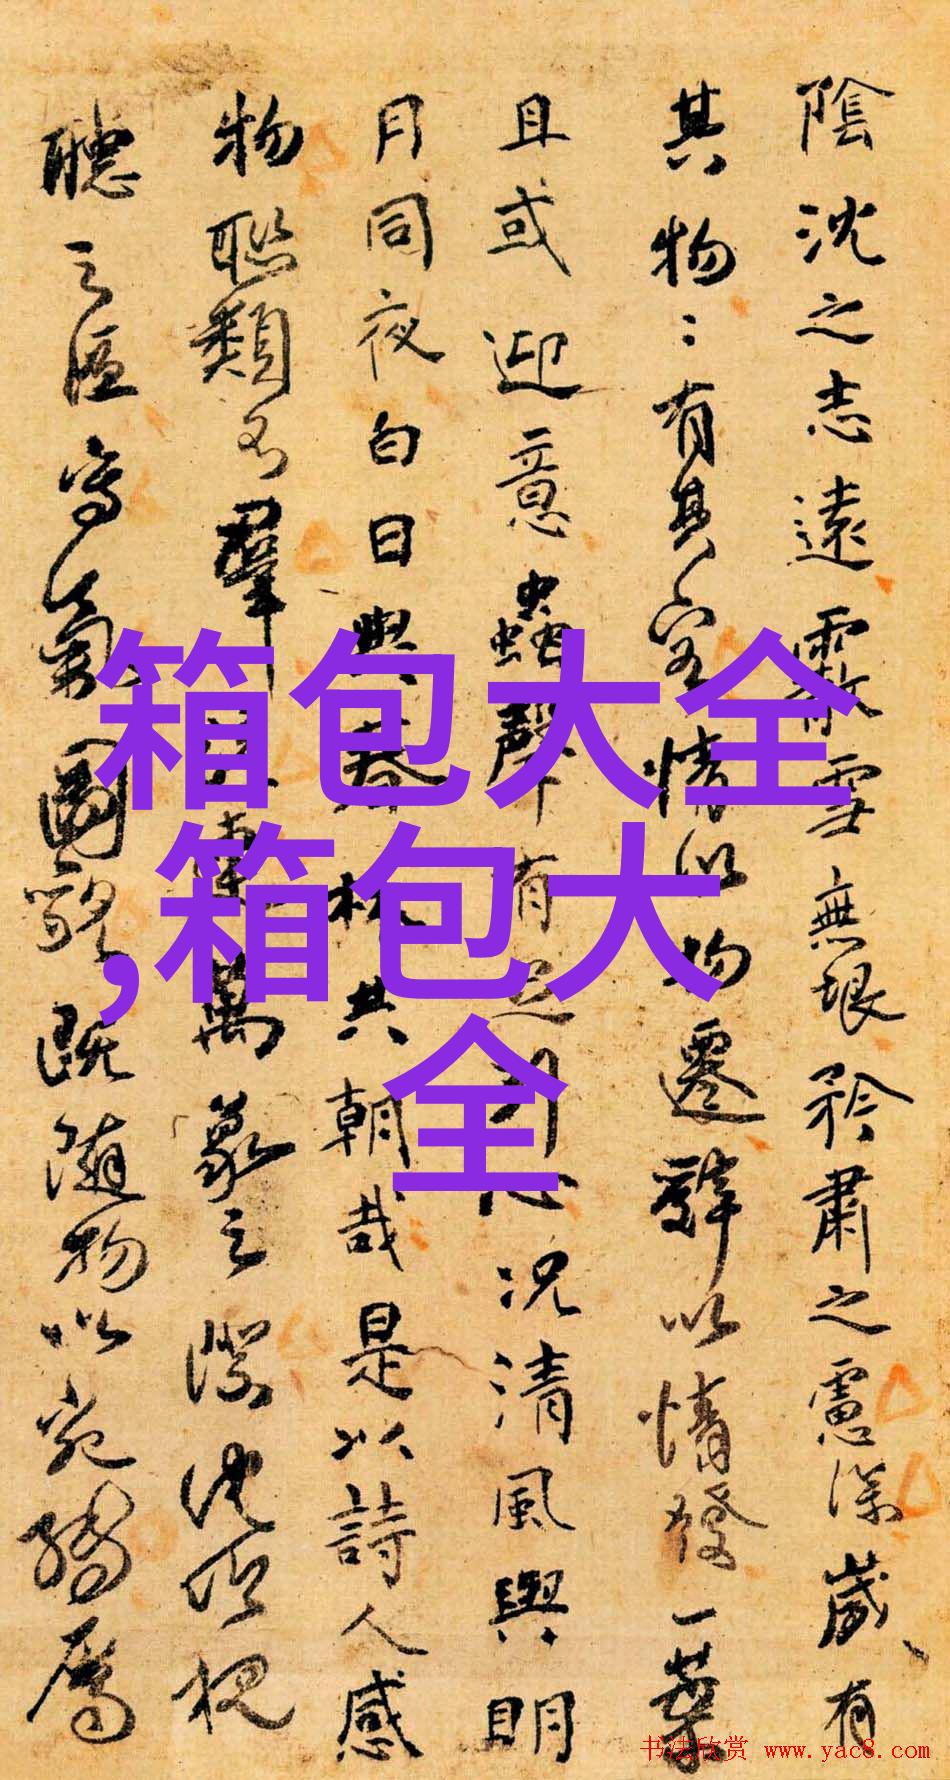 陰沈之志遠霰雪無垠矜肅之慮深歲有
其物物有其容情以物遷辭以情發一葉
且或迎意蟲聲有足引心況清風與明
月同夜白日與春林共朝哉是以詩人感
物聯類不窮萬象之際沈吟視
聽之區寫氣圖貌既隨物以宛轉屬
箱包大全
,箱包大
全
书法欣赏 www.yac8.com